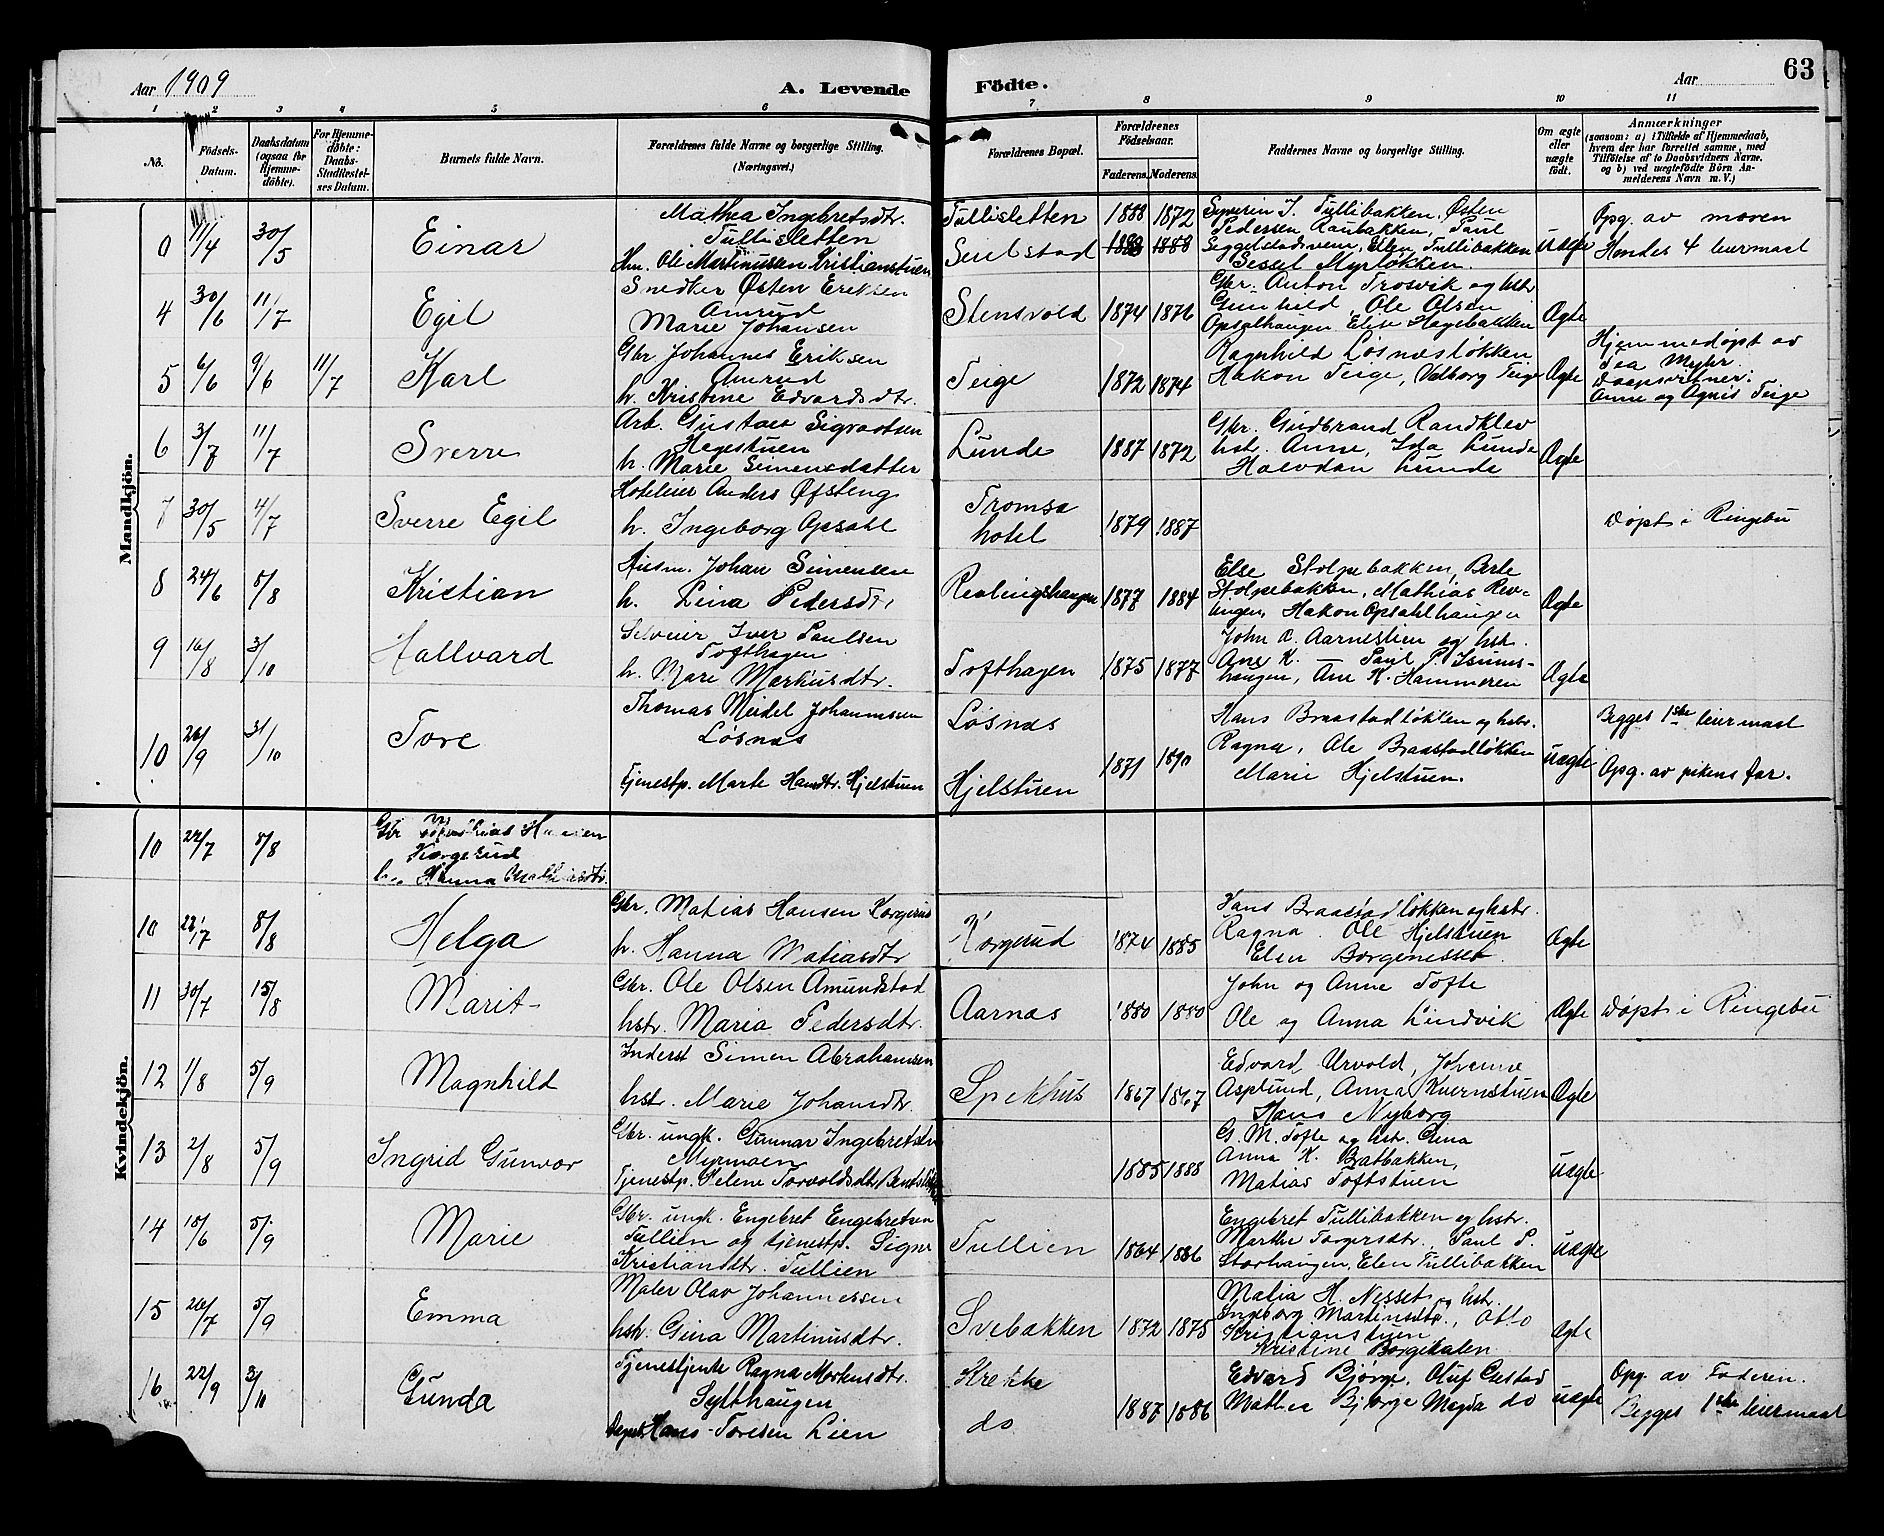 Aar 1909
A. Levende
Födte.
Aar
63
1 2 3 4 5 6 7 8 9 10 11
No.
Födsels-
Datum.
Daabsdatum
(ogsaa for
Hjemme-
döbte).
For Hjemme-
döbte:
Daabs-
Stadfestel-
ses Datum.
Barnets fulde Navn.
Forældrenes fulde Navne og borgerlige Stilling.
(Næringsvei.)
Forældrenes Bopæl.
Forældrenes
Födselsaar.
Faderens. Moderens.
Faddernes Navne og borgerlige Stilling.
Om ægte
eller
uægte
födt.
Anmærkninger
(saasom: a) i Tilfælde af Hjemmedaab,
hvem der har forrettet samme, med
Tilföielse af to Daabsvidners Navne,
og b) ved uægtefödte Börn An-
melderens Navn m. V.)
Mandkjön.
0 11/4 30/5 Einar
Mathea Ingebretsdtr.
Tullisletten
Hm. Ole Martinussen Kristianstuen
Tullisletten
1888 1872
Syverin J. Tullibakken, Østen
Pedersen Raubakken, Paul
Elen Tullibakken
Sessel Myrløkken.
Uægte
Opg. av moren
Hendes 4 leiermaal
4 30/6 11/7 Egil
Snedker Østen Eriksen
Amrud
Marie Johansen
Stensvold
1874 1876
Gbr. Anton Trosvik og hstr.
Gunhild, Ole Olsen
Opsalhaugen Elise Hagebakken
Ægte
5 6/6 9/6 11/7 Karl
Gbr. Johannes Eriksen
Amrud
h. Kristine Edvardsdtr.
Teige
1872 1874
Ragnhild Løsnæsløkken
Hakon Teige, Valborg Teige
Ægte
Hjemmedøpt av
Tea Myhr
Daapsvidner:
Anne og Agnes Teige
6 3/7 11/7 Sverre
Arb. Gustav Sigvartsen
Hagestuen
h. Marie Simensdatter
Lunde
1887 1872
Gbr. Gudbrand Randklev
hst. Anne, Ida Lunde
Halvdan Lunde
Ægte
7 30/5 4/7 Sverre Egil
Hoteleier Anders Øfsteng
h. Ingeborg Opsahl
Tromsa
hotel
1879 1887
Døpt i Ringebu
8 24/6 8/8 Kristian
Husm. Johan Simensen
h. Lina Pedersdtr.
Revlingshaugen
1877 1884
Else Stolpebakken, Berte
Stolpebakken, Mathias Rev-
lingen, Hakon Opsahlhaugen
Ægte
9 16/8 3/10 Hallvard
Selveier Iver Paulsen
Tofthagen
h. Mari Markusdtr.
Tofthagen
1875 1877
John O. Aarneslien og hst.
Ane K. Paul P. Isums-
haugen, Ane K. Hammeren
Ægte
10 26/9 31/10 Tore
Thomas Meidel Johannssen
Løsnæs
Tjenestp. Marte Hansdtr. Hjelstuen
Løsnæs
Hjelstuen
1871 1890
Hans Braastadløkken og hstr.
Ragna, Ole Braastadløkken
Marie Hjelstuen.
uægte
Begges 1ste leiermaal
Opg. av pikens far.
Kvindekjön.
10 22/7 8/8
Gbr Mathias Hansen
Korgerud
h. Hanna Mathiasdtr.
10 22/7 8/8 Helga
Gbr. Matias Hansen Korgerud
h. Hanna Matiasdtr
Korgerud
1874 1885
Hans Braastadløkken og hstr.
Ragna. Ole Hjelstuen
Elen Borgenesset.
Ægte
11 30/7 15/8 Marit
Gbr. Ole Olsen Amundstad
hstr. Maria Pedersdtr.
Aarnæs
1880 1880
John og Anne Tofte
Ole og Anna Lindvik
Ægte
Døpt i Ringebu
12 1/8 5/9 Magnhild
Inderst Simen Abrahamsen
hstr. Marie Johansdtr.
Spekhus
1867 1867
Edvard Urvold, Johanne
Asplund, Anna Kvernstuen
Hans Nyborg
Ægte
13 2/8 5/9 Ingrid Gunvor
Gbr. ungk. Gunnar Ingebretsen
Myrmoen
Tjenestp. Helene Torvoldsdtr.
1885 1888
G. M. Tofte og hstr. Gina
Anna K. Bratbakken,
Matias Toftstuen
uægte
14 15/6 5/9 Marie
Gbr. ungk. Engebret Engebretsen
Tullien og tjenestp. Signe
Kristiansdtr. Tullien
Tullien
1864 1886
Engebret Tullibakken og hstr.
Marthe Torgersdtr. Paul P.
Storhaugen, Elen Tullibakken
uægte
15 26/7 5/9 Emma
Maler Olav Johannessen
hstr. Gina Martinusdtr.
Svebakken
1872 1875
Matia H. Nesset og hstr.
Ingeborg Martinsdtr., Otto
Kristianstuen
Kristine Borgedalen
Ægte
16 22/9 3/10 Gunda
Tjenestjente Ragna Markusdtr.
Sylthaugen
Hans Toresen Lien
Krekke
do
1887 1886
Edvard Bjørge, Oluf Gustad
Mathea Bjørge Magda do
uægte
Opg. av Faderen.
Begges 1ste leiermaal